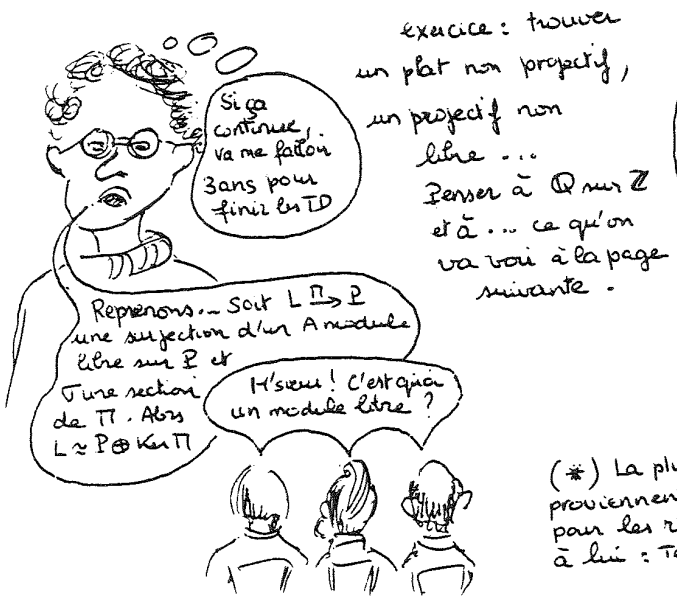 Si ça
continue,
va me falloir
3 ans pour
finir les TD
exercice : trouver
un plat non projectif,
un projectif non
libre ...
Penser à ℚ sur ℤ
et à ... ce qu'on
va voir à la page
suivante .
Reprenons... Soit L Π→ P
une surjection d'un A module
libre sur P et
σ une section
de Π. Alors
L ≃ P ⊕ Ker Π
M'sieur ! C'est quoi
un module libre ?
(*) La plu
proviennen
pour les
à lui :